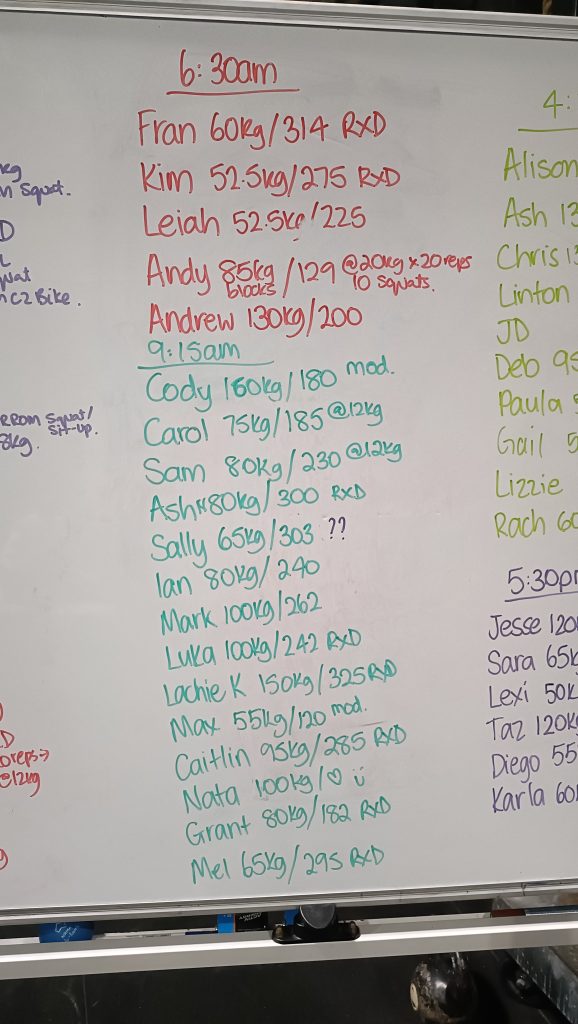 6:30am
Fran 60kg/314 RXD
Kim 52.5kg/275 RXD
Leiah 52.5kg/225
Andy 85kg/129 @20kg x 20reps
blocks 10 Squats.
Andrew 130kg/200
9:15am
Cody 160kg/180 mod.
Carol 75kg/185 @12kg
Sam 80kg/230 @12kg
Ash N 80kg/300 RXD
Sally 65kg/303 ??
Ian 80kg/240
Mark 100kg/262
Luka 100kg/242 RXD
Lachie K 150kg/325 RXD
Max 55kg/120 mod.
Caitlin 95kg/285 RXD
Nata 100kg/♡ ü
Grant 80kg/182 RXD
Mel 65kg/295 RXD
Squat.
C2 Bike.
ROM Squat/
Sit-up.
8kg.
reps→
@12kg
4:
Alison
Ash 13
Chris 13
Linton
JD
Deb 95
Paula
Gail 5
Lizzie
Rach 60
5:30p
Jesse 120
Sara 65k
Lexi 50k
Taz 120k
Diego 55
Karla 60